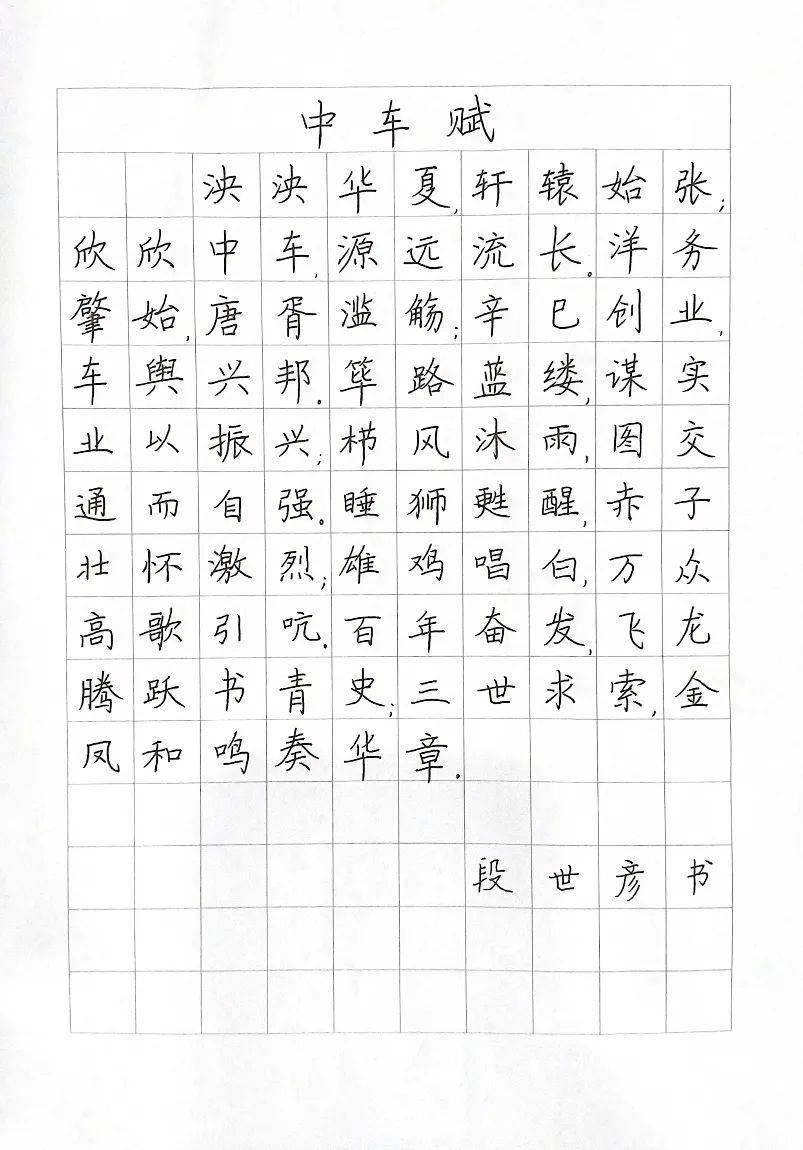 中车赋
泱泱华夏,轩辕始张;
欣欣中车,源远流长。洋务
肇始,唐胥滥觞;辛巳创业,
车舆兴邦。筚路蓝缕,谋实
业以振兴;栉风沐雨,图交
通而自强。睡狮甦醒,赤子
壮怀激烈;雄鸡唱白,万众
高歌引吭。百年奋发,飞龙
腾跃书青史;三世求索,金
凤和鸣奏华章。
段世彦书